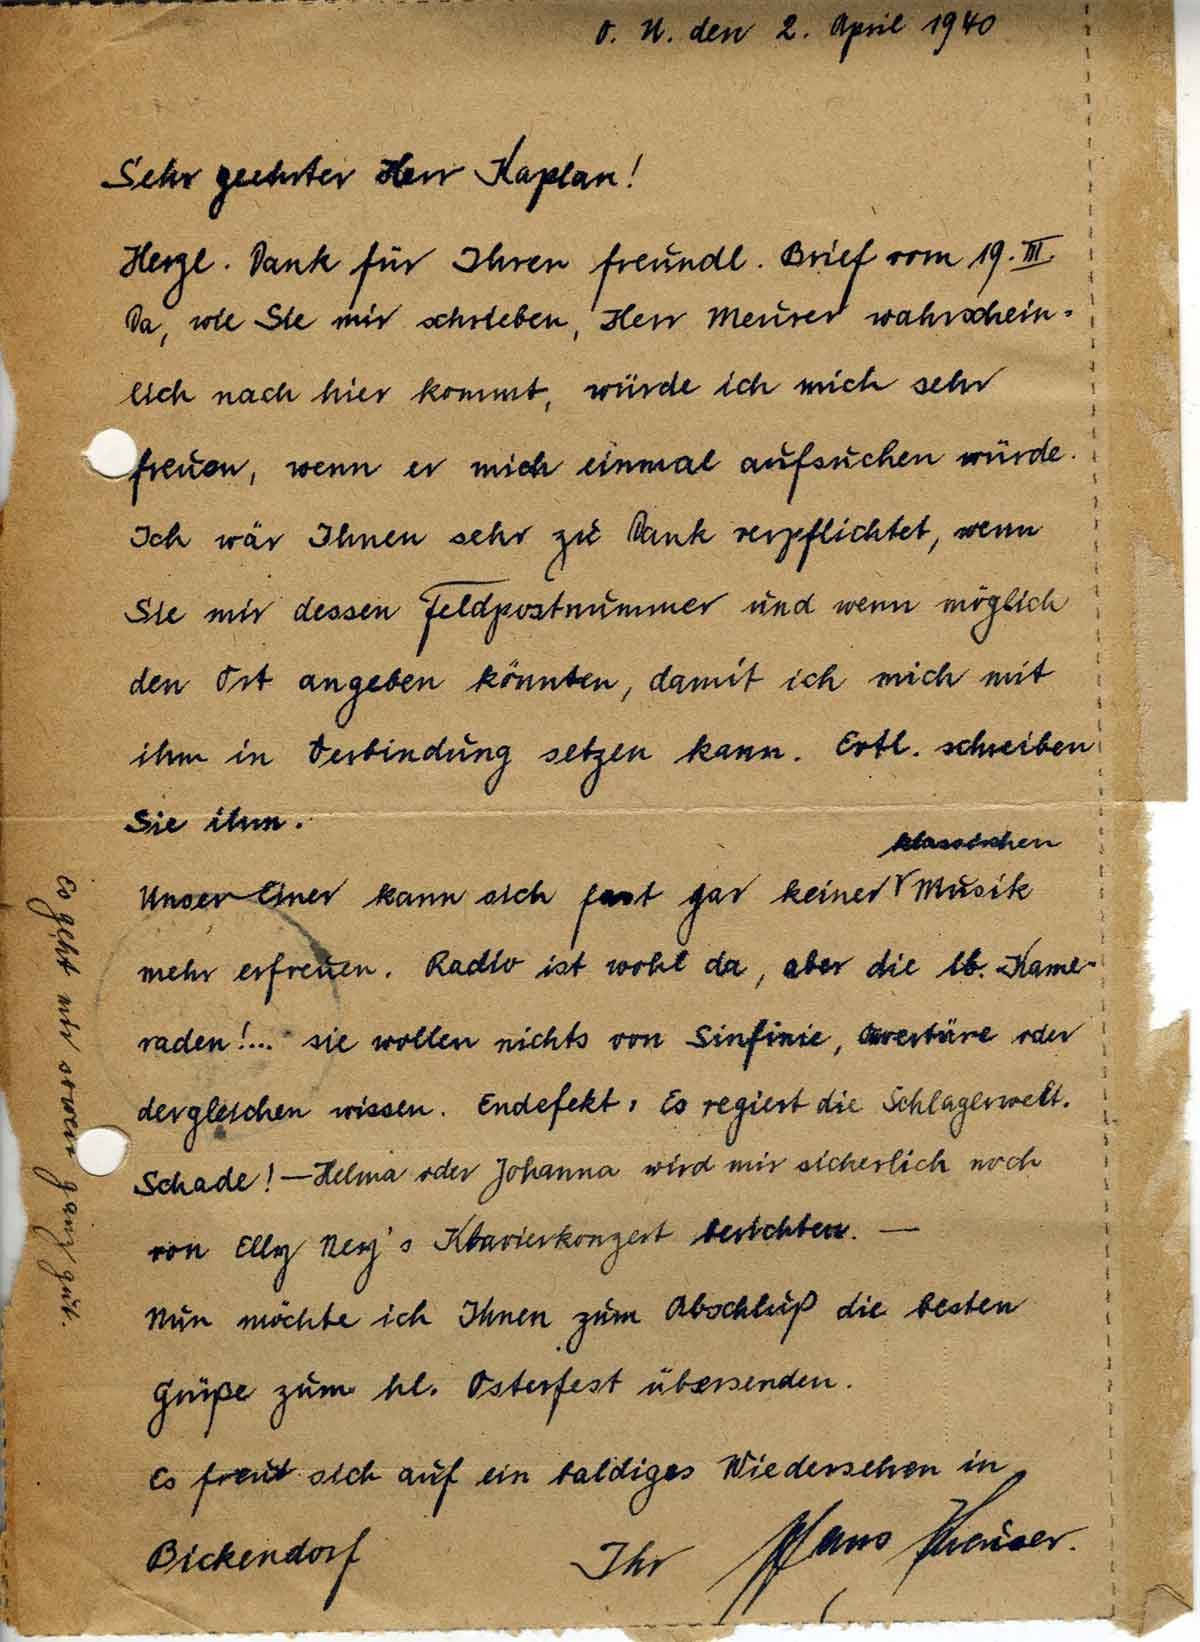 O. U. den 2. April 1940
Sehr geehrter Herr Kaplan!
Herzl. Dank für Ihren freundl. Brief vom 19. III.
Da, wie Sie mir schrieben, Herr Meurer wahrschein-
lich nach hier kommt, würde ich mich sehr
freuen, wenn er mich einmal aufsuchen würde.
Ich wär Ihnen sehr zu Dank verpflichtet, wenn
Sie mir dessen Feldpostnummer und wenn möglich
den Ort angeben könnten, damit ich mich mit
ihm in Verbindung setzen kann. Evtl. schreiben
Sie ihm.
klassischen
Unser Einer kann sich fast gar keiner Musik
mehr erfreuen. Radio ist wohl da, aber die lb. Kame-
raden!... sie wollen nichts von Sinfinie, Overtüre oder
dergleichen wissen. Endefekt: Es regiert die Schlagerwelt.
Schade! — Helma oder Johanna wird mir sicherlich noch
von Elly Ney's Klavierkonzert berichten. —
Nun möchte ich Ihnen zum Abschluß die besten
Grüße zum hl. Osterfest übersenden.
Es freut sich auf ein baldiges Wiedersehen in
Bickendorf Ihr Hans
Es geht mir soweit ganz gut.